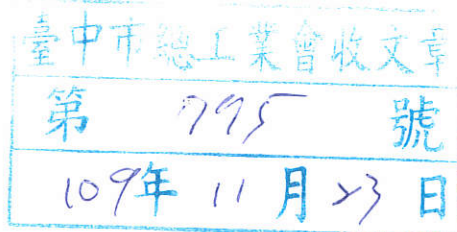 臺中市總工業會收文章
第 795 號
109年 11 月 23 日